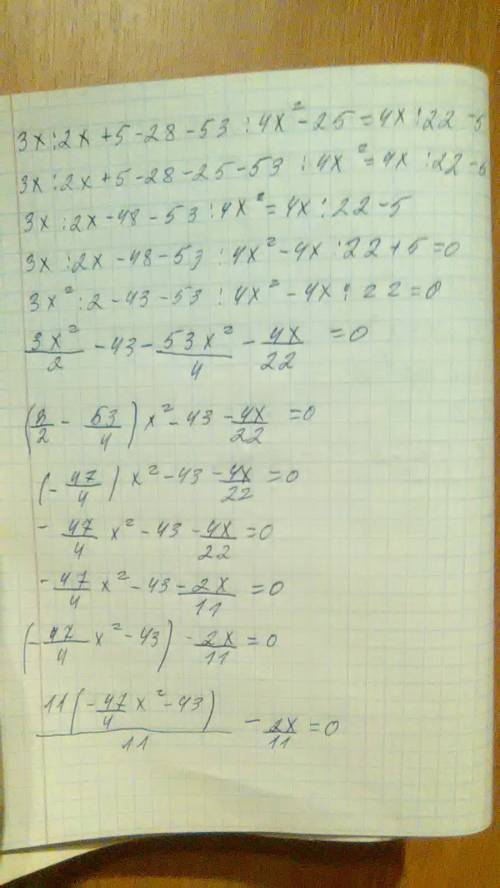 3x:2x+5-28-53:4x²-25=4x:22-5
3x:2x+5-28-25-53:4x²=4x:22-5
3x:2x-48-53:4x²=4x:22-5
3x:2x-48-53:4x²-4x:22+5=0
3x²:2-43-53:4x²-4x:22=0
3x²/2-43-53x²/4-4x/22=0
(3/2-53/4)x²-43-4x/22=0
(-47/4)x²-43-4x/22=0
-47/4x²-43-4x/22=0
-47/4x²-43-2x/11=0
(-47/4x²-43)-2x/11=0
11(-47/4x²-43)/11-2x/11=0